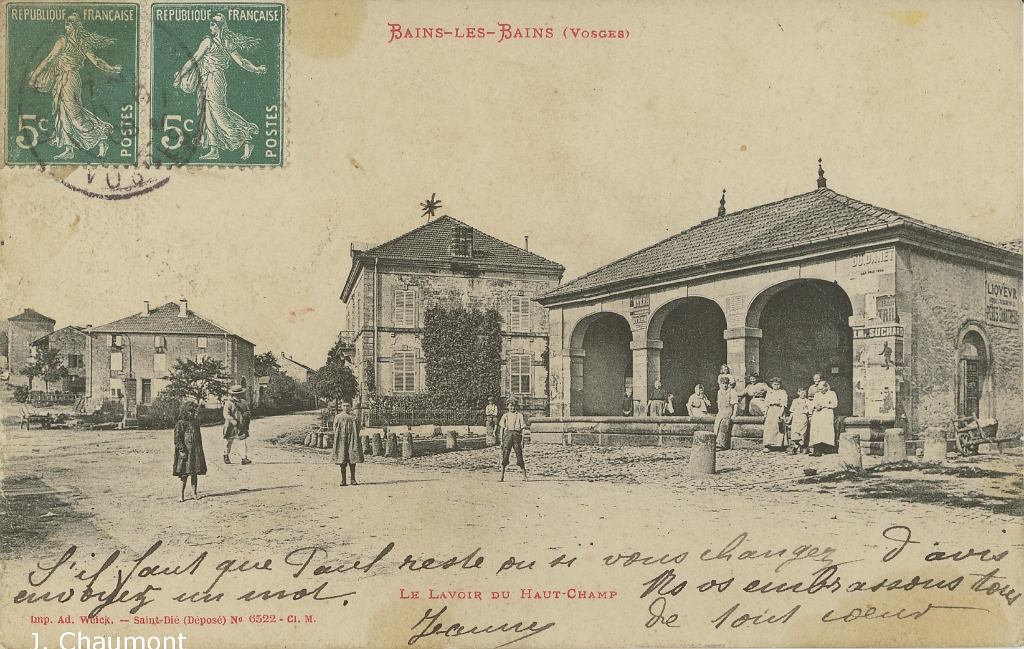 RÉPUBLIQUE FRANÇAISE
5c
POSTES
RÉPUBLIQUE FRANÇAISE
5c
POSTES
BAINS-LES-BAINS (VOSGES)
LIQUEUR
SUCHARD
S'il faut que Paul reste ou si vous changez d'avis
envoyez un mot.
LE LAVOIR DU HAUT-CHAMP
Ns vs embrassons tous
de tout cœur
Jeanne
Imp. Ad. Weick. — Saint-Dié (Déposé) No 6522 - Cl. M.
J. Chaumont